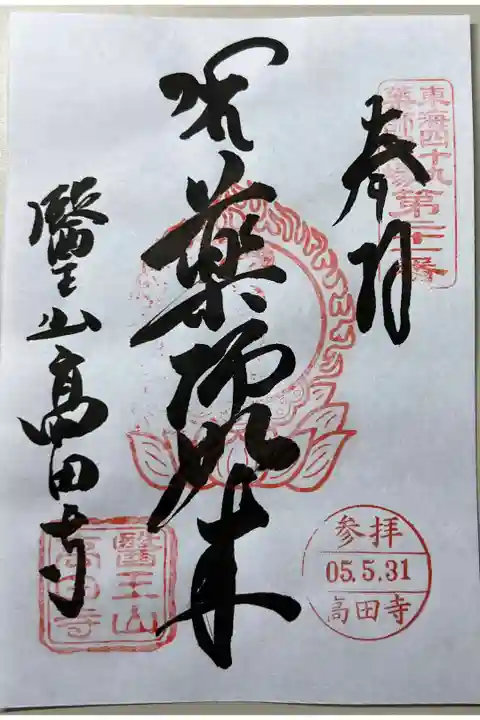 東海四十九
薬師霊場
第二十二番
奉拝
薬師如来
醫王山高田寺
醫王山
高田寺
参拝
05.5.31
高田寺